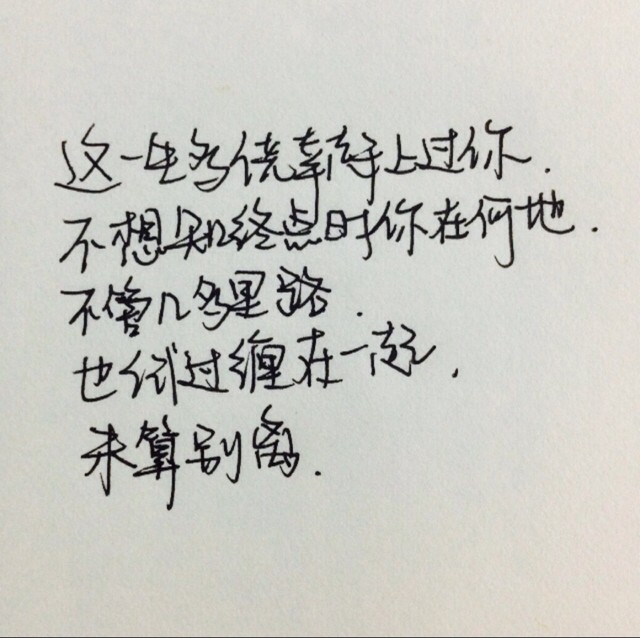 这一生多侥幸上过你.
不想知终点时你在何地.
不管几多里路.
也试过缠在一起,
未算别离.